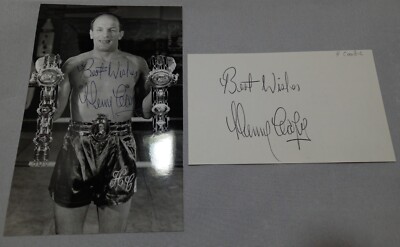 Best Wishes
Henry Cooper
HC
Best Wishes
Henry Cooper